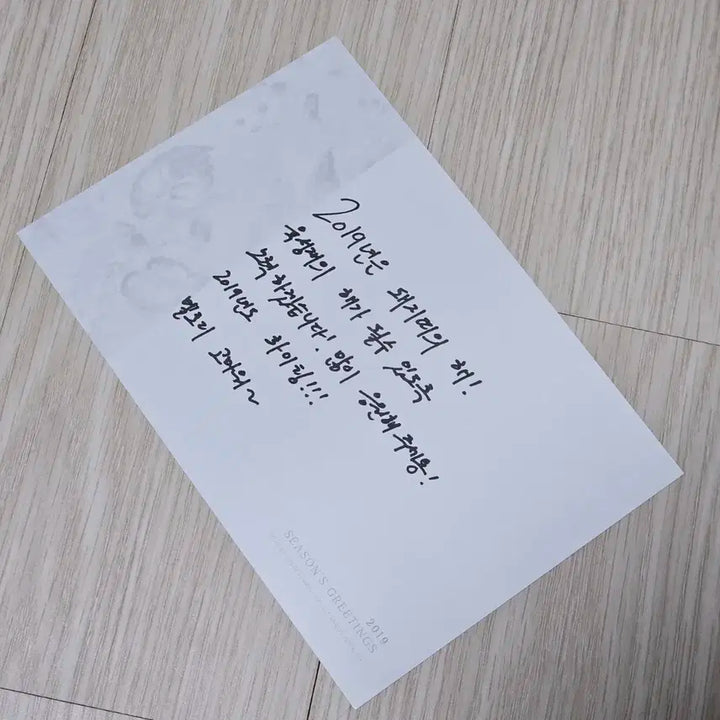 2019년은 돼지띠의 해!
육성재의 해가 될수 있도록
노력 하겠습니다! 많이 응원해 주세용!
2019년도 화이팅!!!
별도리 고마워~
SEASON'S GREETINGS
2019